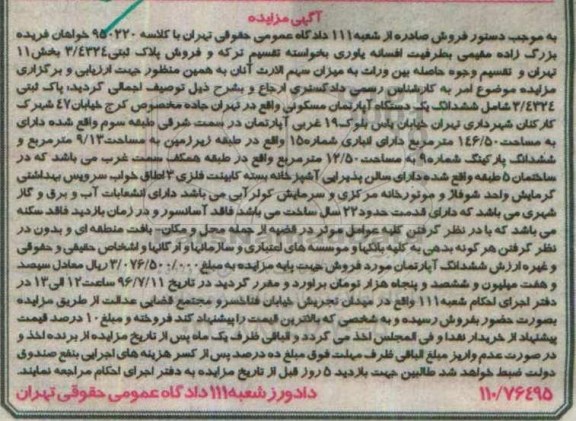 آگهی مزایده
به موجب دستور فروش صادره از شعبه ۱۱۱ دادگاه عمومی حقوقی تهران با کلاسه ۹۵۰۲۲۰ خواهان فریده
بزرگ زاده مقیمی بطرفیت افسانه یاوری بخواسته تقسیم ترکه و فروش پلاک ثبتی ۳/۴۳۲۴ بخش ۱۱
تهران و تقسیم وجوه حاصله بین وراث به میزان سهم الارث آنان به همین منظور جهت ارزیابی و برگزاری
مزایده موضوع امر به کارشناس رسمی دادگستری ارجاع و بشرح ذیل توصیف اجمالی گردید، پاک ثبتی
۳/۴۳۲۴ شامل ششدانگ یک دستگاه آپارتمان مسکونی واقع در تهران جاده مخصوص کرج خیابان ۴۷ شهرک
کارکنان شهرداری تهران خیابان یاس بلوک ۱۹ غربی آپارتمان در سمت شرقی طبقه سوم واقع شده دارای
به مساحت ۱۴۶/۵۰ مترمربع دارای انباری شماره ۱۵ واقع در طبقه زیرزمین به مساحت ۹/۱۳ مترمربع و
ششدانگ پارکینگ شماره ۹ به مساحت ۱۲/۵۰ مترمربع واقع در طبقه همکف سمت غرب می باشد که در
ساختمان ۵ طبقه واقع شده دارای سالن پذیرایی آشپزخانه بسته کابینت فلزی ۳ اطاق خواب سرویس بهداشتی
گرمایش واحد شوفاژ و موتورخانه مرکزی و سرمایش کولر آبی می باشد دارای انشعابات آب و برق و گاز
شهری می باشد که دارای قدمت حدود ۲۲ سال ساخت می باشد فاقد آسانسور و در زمان بازدید فاقد سکنه
می باشد که با در نظر گرفتن کلیه عوامل موثر در قضیه از جمله محل و مکان- بافت منطقه ای و بدون در
نظر گرفتن هر گونه بدهی به کلیه بانکها و موسسه های اعتباری و سازمانها و ارگانها و اشخاص حقیقی و حقوقی
و غیره ارزش ششدانگ آپارتمان مورد فروش جهت پایه مزایده به مبلغ ۳/۰۷۶/۵۰۰/۰۰۰ ریال معادل سیصد
و هفت میلیون و ششصد و پنجاه هزار تومان براورد و مقرر گردید در تاریخ ۹۶/۷/۱۱ ساعت ۱۲ الی ۱۳ در
دفتر اجرای احکام شعبه ۱۱۱ واقع در میدان تجریش خیابان فناخسرو مجتمع قضایی عدالت از طریق مزایده
بصورت حضور بفروش رسیده و به شخصی که بالاترین قیمت را پیشنهاد کند فروخته و مبلغ ۱۰ درصد قیمت
پیشنهاد از خریدار نقدا و فی المجلس اخذ می گردد و الباقی ظرف یک ماه پس از تاریخ مزایده از برنده اخذ و
در صورت عدم واریز مبلغ الباقی ظرف مهلت فوق مبلغ ده درصد پس از کسر هزینه های اجرایی بنفع صندوق
دولت ضبط خواهد شد طالبین جهت بازدید ۵ روز قبل از تاریخ مزایده به دفتر اجرای احکام مراجعه نمایند.
دادورز شعبه ۱۱۱ دادگاه عمومی حقوقی تهران
۱۱۰/۷۶۴۹۵